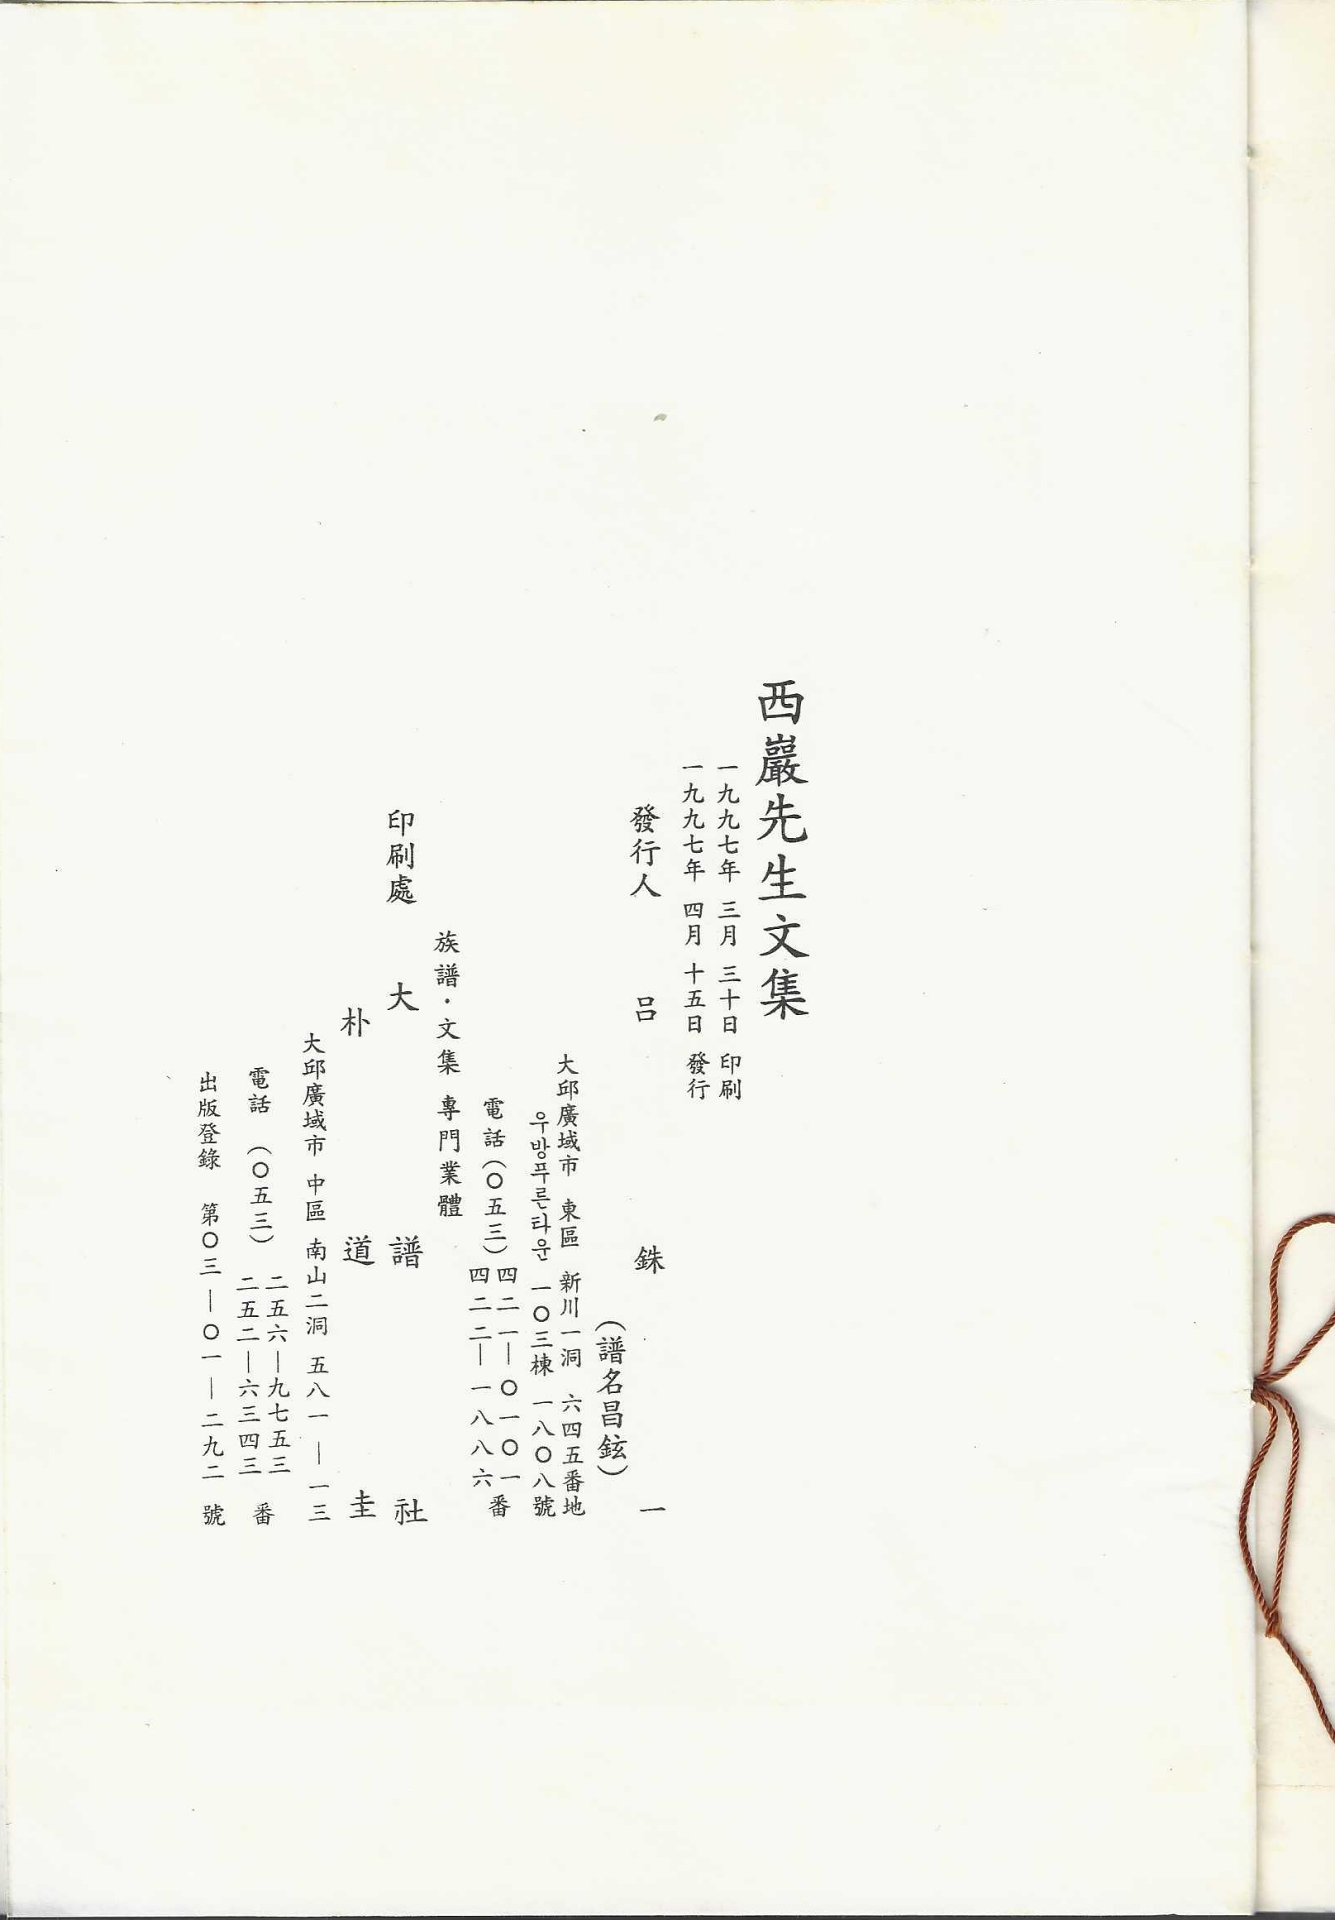 西巖先生文集
一九九七年 三月 三十日 印刷
一九九七年 四月 十五日 發行
發行人 呂 銖 一
(譜名昌鉉)
大邱廣域市 東區 新川一洞 六四五番地
우방푸른타운 一〇三棟 一八〇八號
電話(〇五三)四二一—〇一〇一番
四二二—一八八六
族譜·文集 專門業體
印刷處 大 譜 社
朴 道 圭
大邱廣域市 中區 南山二洞 五八一—一三
電話 (〇五三) 二五六—九七五三
二五二—六三四三 番
出版登錄 第〇三—〇一—二九二 號